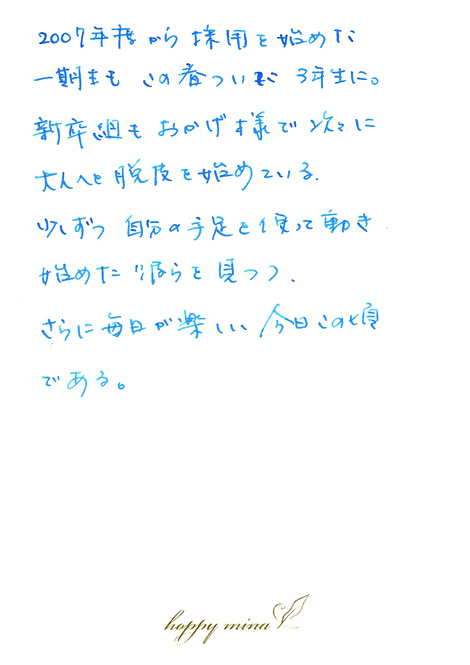 2007年度から採用を始めた
一期生も この春ついに 3年生に。
新卒組も おかげ様で 次々に
大人へと 脱皮を始めている.
少しずつ 自分の手足を使って動き
始めた 彼らを 見つつ、
さらに毎日が楽しい 今日この頃
である。
happy mina